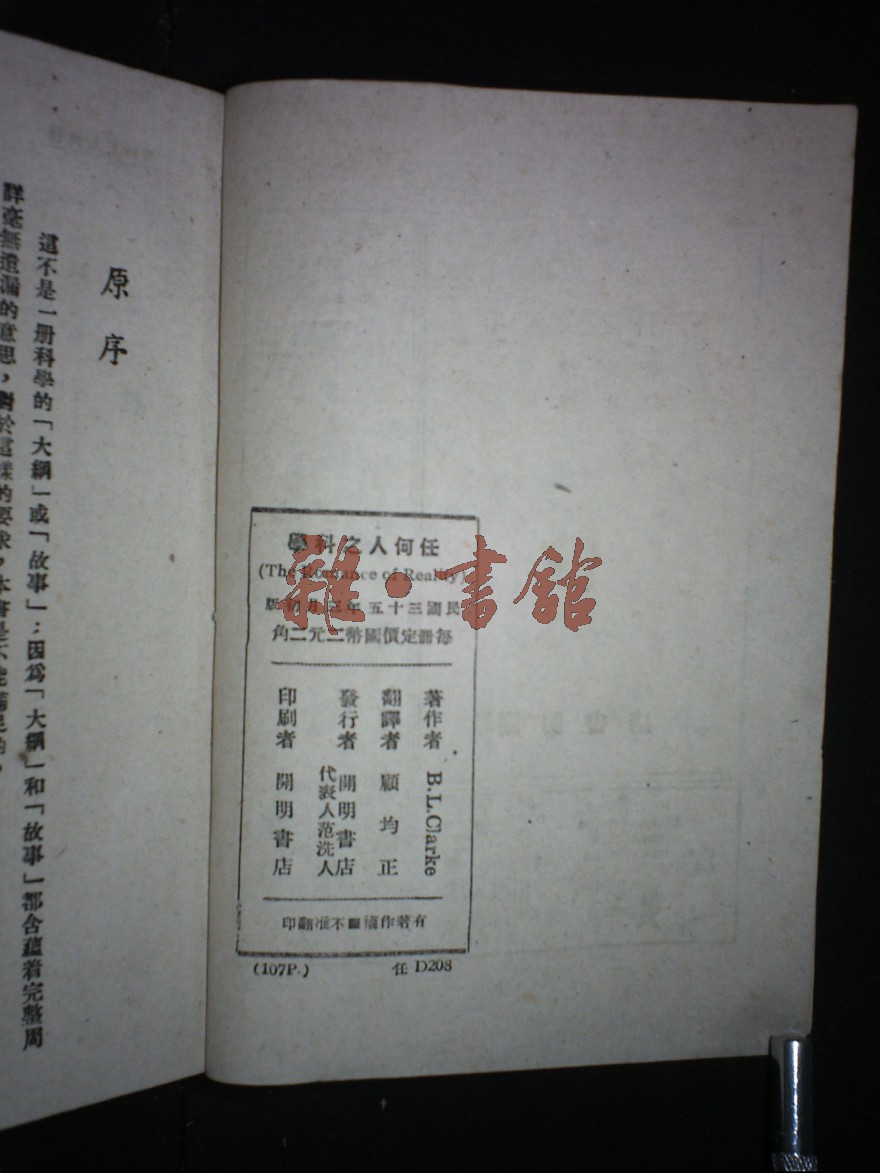 任何人之科學
(The Romance of Reality)
民國三十五年三月初版
每冊定價國幣二元二角
著作者 B.L.Clarke
翻譯者 顧均正
發行者 開明書店
代表人范洗人
印刷者 開明書店
有著作權■不准翻印
(107P.) 任 D208
原序
這不是一册科學的「大綱」或「故事」；因爲「大綱」和「故事」都含蘊着完整周
詳毫無遺漏的意思，對於這樣的要求，本書是不能滿足的，
雜·書館